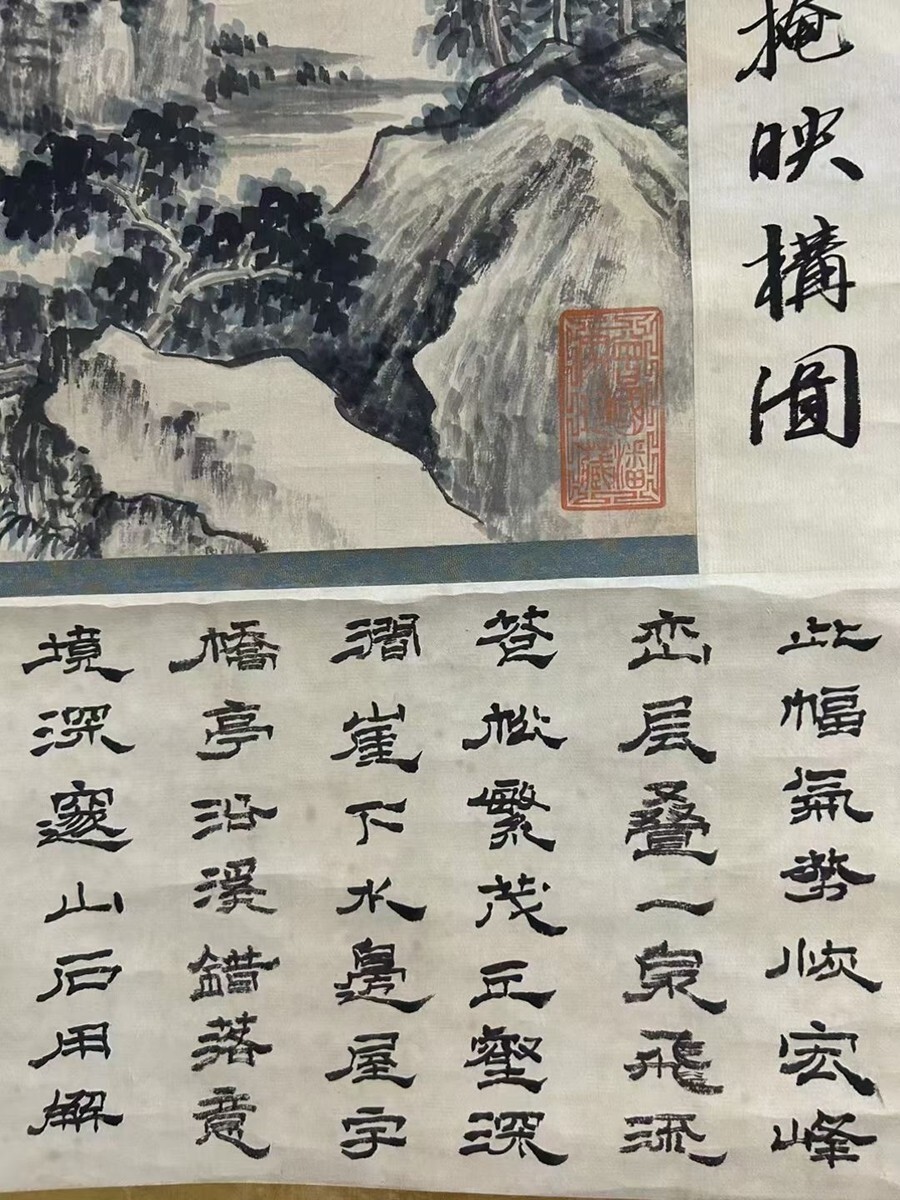 掩映構圖
此幅氣勢恢宏峰
峦层叠一泉飛流
苍松繁茂丘壑深
澗崖下水邊屋宇
橋亭沿溪錯落意
境深邃山石用解